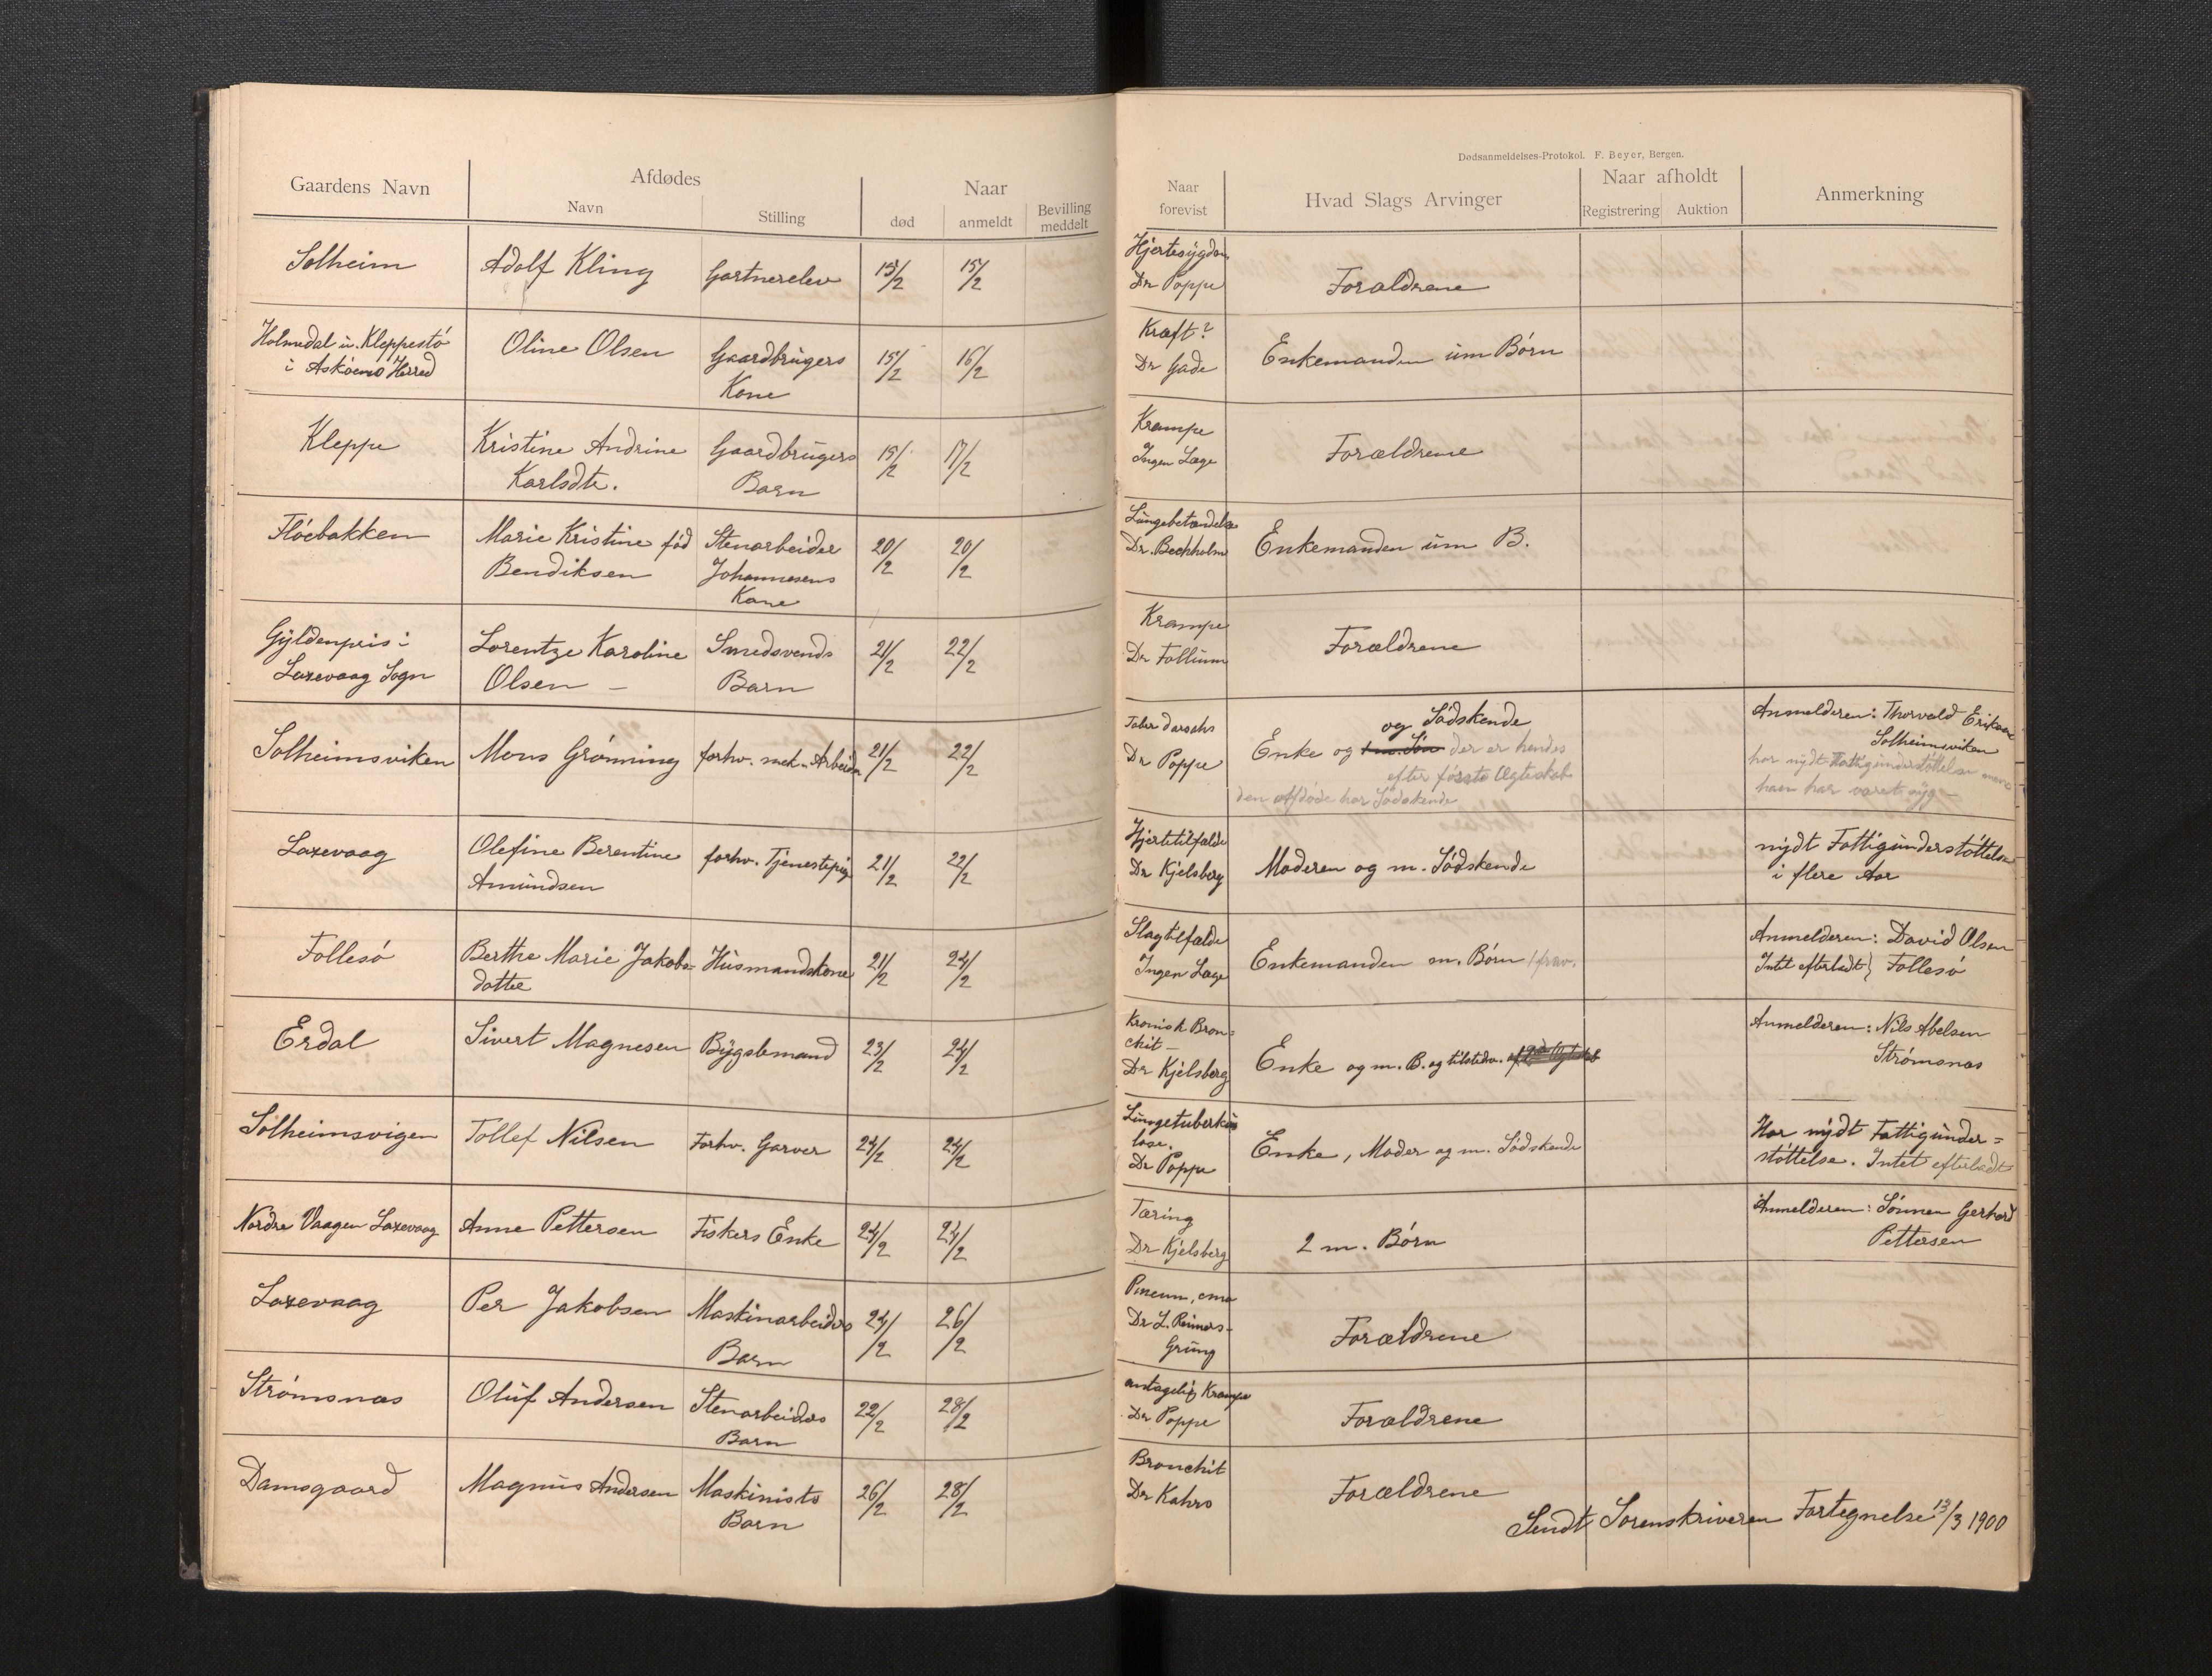 Dødsanmeldelses-Protokol. F. Beyer, Bergen.
Gaardens Navn Afdødes Naar
Navn Stilling død anmeldt Bevilling meddelt
Naar forevist Hvad Slags Arvinger Naar afholdt Anmerkning
Registrering Auktion
Solheim Adolf Kling Gartnerelev 15/2 15/2
Hjertesygdom
Dr Poppe Forældrene
Holmedal u. Kleppestö
i Asköens Herred
Oline Olsen Gaardbrugers
Kone
15/2 16/2
Kræft?
Dr Gade
Enkemanden um Börn
Kleppe Kristine Andrine
Karlsdtr.
Gaardbrugers
Barn
15/2 17/2
Krampe
Ingen Læge
Forældrene
Flöebakken Marie Kristine fød
Bendiksen
Stenarbeider
Johannesens
Kone
20/2 20/2
Lungebetændelse
Dr. Bechholm
Enkemanden um B.
Gyldenpris i
Laxevaag Sogn
Lorentze Karoline
Olsen –
Smedsvends
Barn
21/2 22/2
Krampe
Dr Follum
Forældrene
Solheimsviken Mons Grönning forhv. mek. Arbeider 21/2 22/2
Dr Poppe
og Södskende
Enke og m. Sön der er hendes
efter første Ægteskab
den Afdöde har Södskende
Anmelderen: Thorvald Eriksen
Solheimsviken
har nydt Fattigunderstöttelse mens
han har været syg –
Laxevaag Olefine Berentine
Amundsen
forhv. Tjenestepige 21/2 22/2
Hjertetilfælde
Dr Kjelsberg
Moderen og m. Södskende
nydt Fattigunderstöttelse
i flere Aar
Follesö Berthe Marie Jakobs-
datter
Husmandskone 21/2 24/2
Slagtilfælde
Ingen Læge
Enkemanden m. Börn
Anmelderen: David Olsen
Intet efterladt) Follesö
Erdal Sivert Magnesen Bygslemand 23/2 24/2
Kronisk Bron=
chit –
Dr Kjelsberg
Enke og m. B. og tilstedev.
Anmelderen: Nils Abelsen
Strömsnæs
Solheimsvigen Tollef Nilsen Forhv. Garver 24/2 24/2
Lungetuberku
lose.
Dr Poppe
Enke, Moder og m. Södskende
Har nydt Fattigunder=
stöttelse. Intet efterladt
Nordre Vaagen Laxevaag Anne Pettersen Fiskers Enke 24/2 24/2
Tæring
Dr Kjelsberg
2 m. Börn
Anmelderen: Sönnen Gerhard
Pettersen
Laxevaag Per Jakobsen Maskinarbeiders
Barn
24/2 26/2
Dr L. Reimers-
Grung
Forældrene
Strömsnæs Oluf Andersen Stenarbeiders
Barn
22/2 28/2
antagelig Krampe
Dr Poppe
Forældrene
Damsgaard Magnus Andersen Maskinists
Barn
26/2 28/2
Bronchit
Dr Kahrs
Forældrene
Sendt Sorenskriveren Fortegnelse 13/3 1900